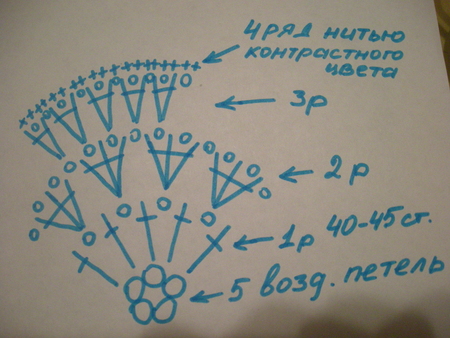 4 ряд нитью
контрастного
цвета
3р
2р
1р 40-45 ст.
5 возд. петель